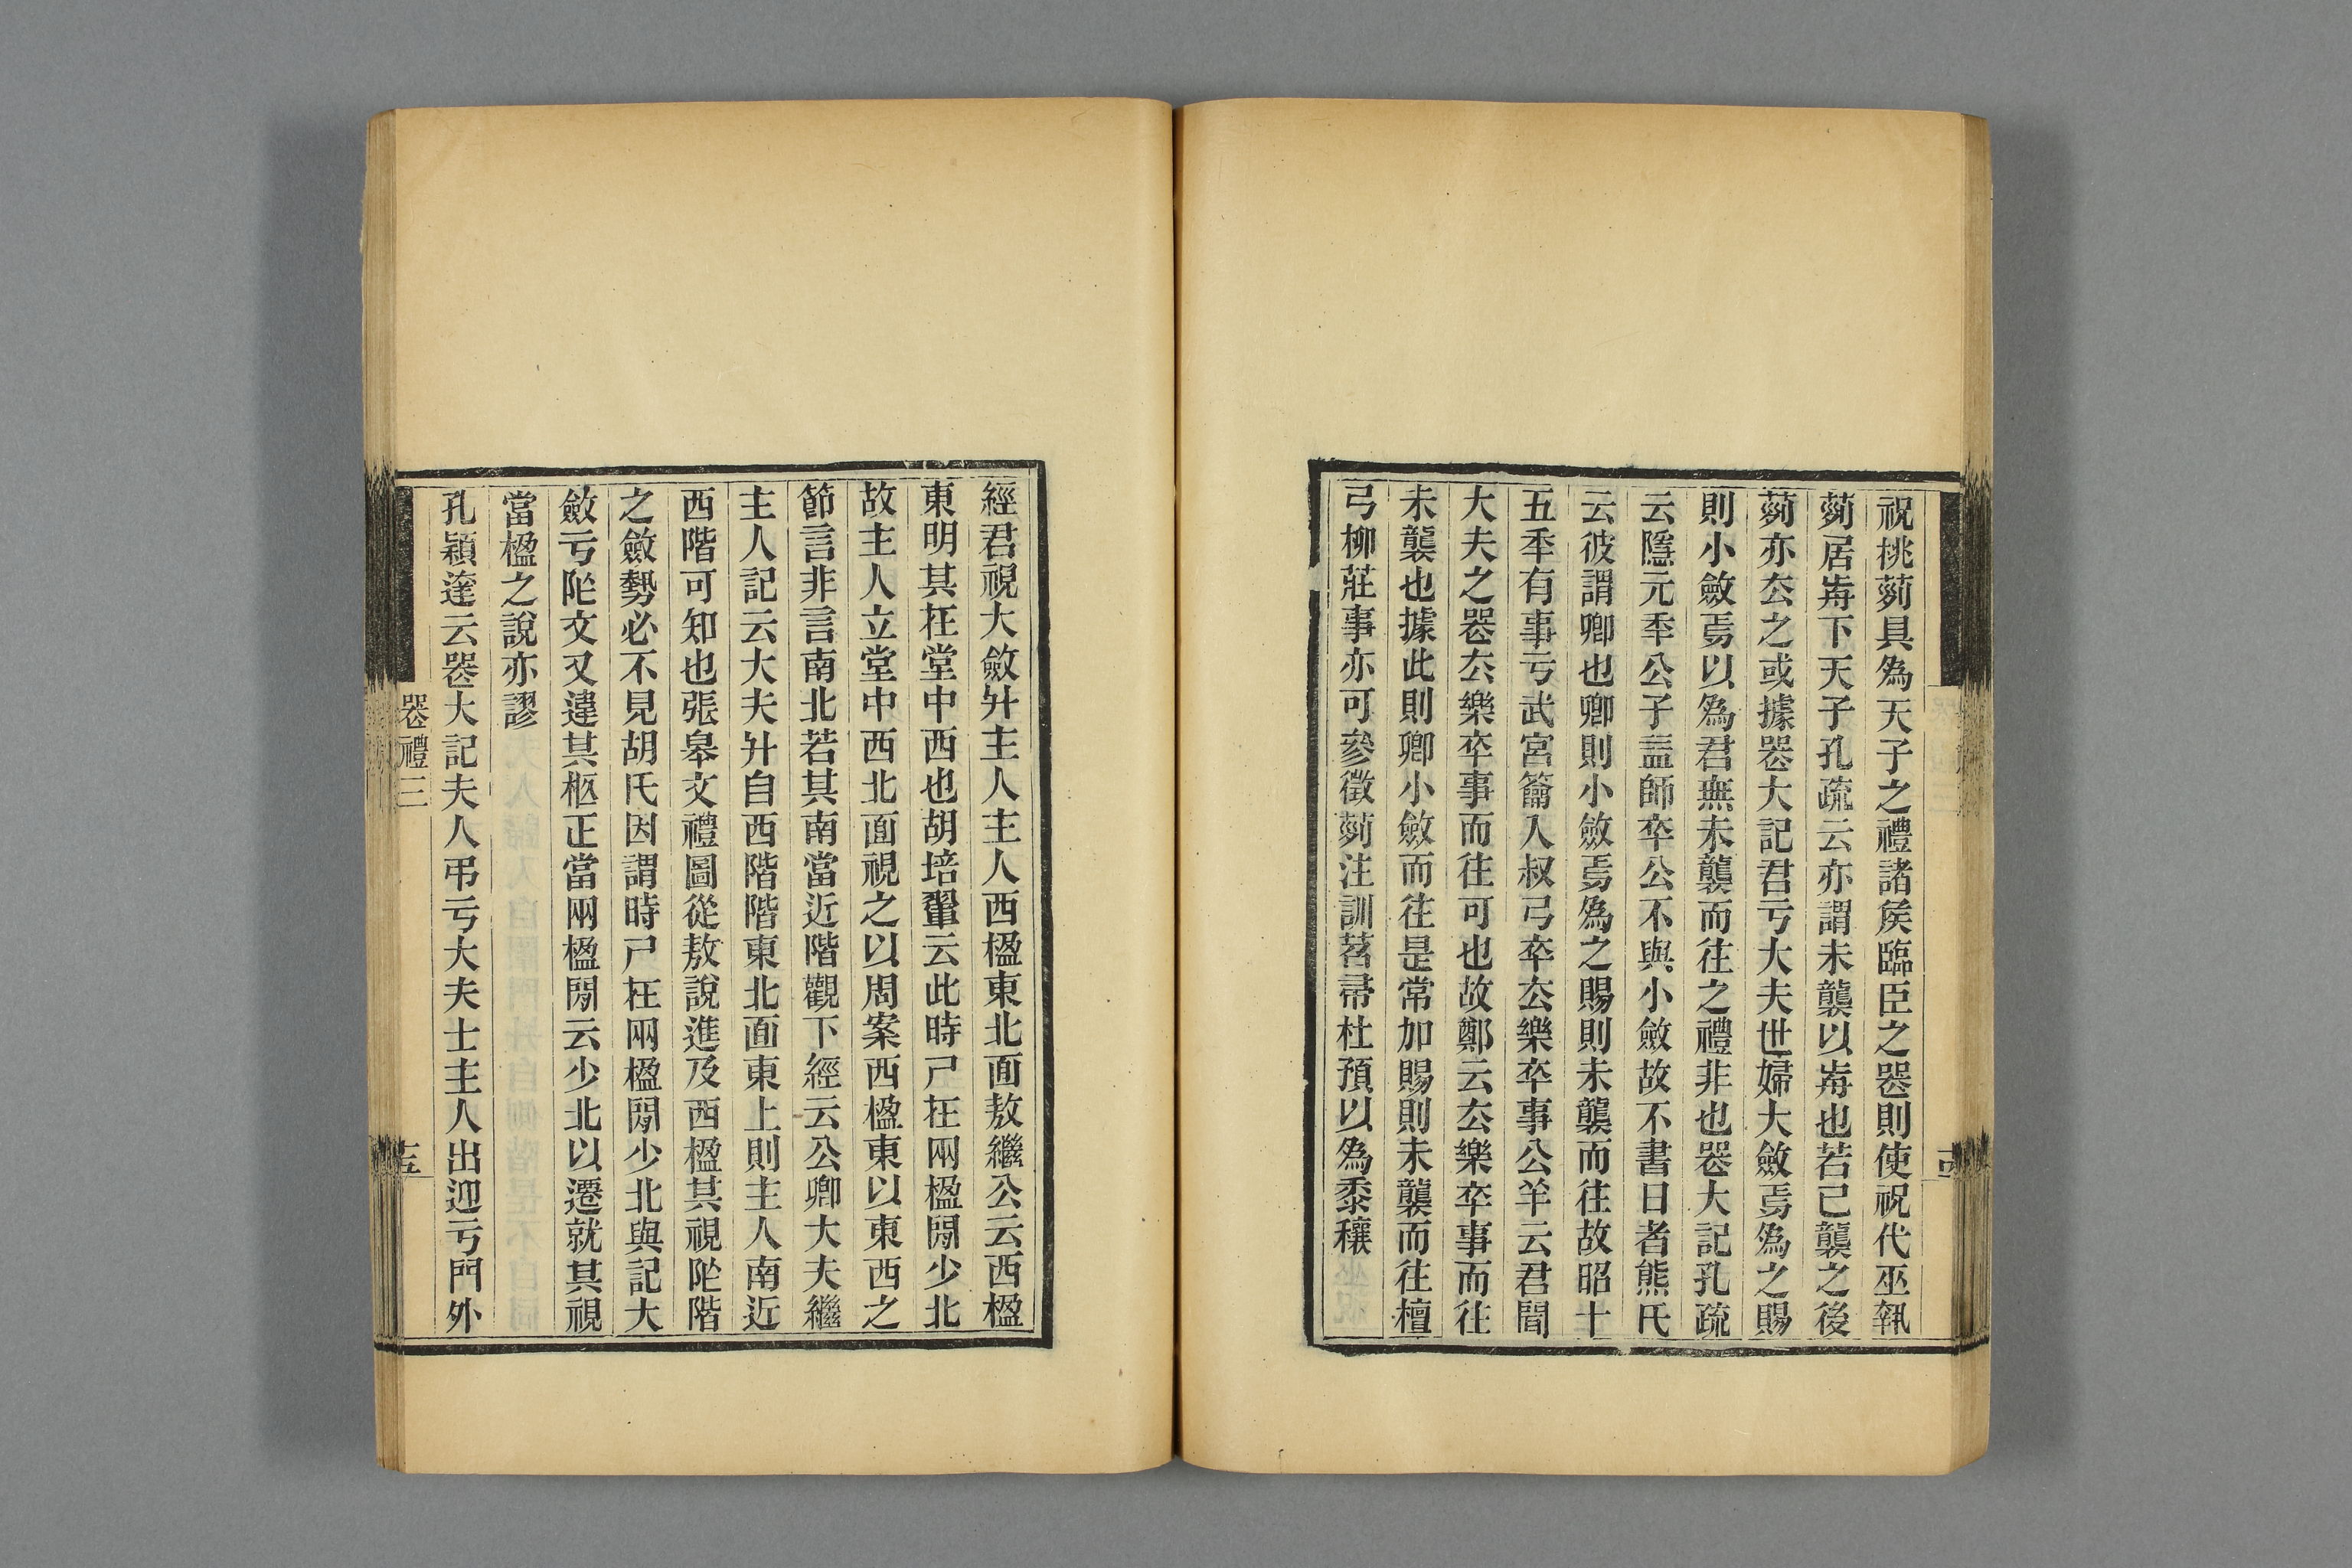 祝桃茢具爲天子之禮諸矦臨臣之喪則使祝代巫執
茢居歬下天子孔疏云亦謂未襲以歬也若已襲之後
茢亦厺之或據喪大記君亏大夫世婦大斂焉爲之賜
則小斂焉以爲君無未襲而往之禮非也喪大記孔疏
云隱元秊公子益師卒公不與小斂故不書日者熊氏
云彼謂卿也卿則小斂焉爲之賜則未襲而往故昭十
五秊有事亏武宮籥入叔弓卒厺樂卒事公羊云君聞
大夫之喪厺樂卒事而往可也故鄭云厺樂卒事而往
未襲也據此則卿小斂而往是常加賜則未襲而往檀
弓柳莊事亦可參徵茢注訓苕帚杜預以爲黍穰
經君視大斂升主人主人西楹東北面敖繼公云西楹
東明其在堂中西也胡培翬云此時尸在兩楹閒少北
故主人立堂中西北面視之以周案西楹東以東西之
節言非言南北若其南當近階觀下經云公卿大夫繼
主人記云大夫升自西階階東北面東上則主人南近
西階可知也張皋文禮圖從敖說進及西楹其視阼階
之斂勢必不見胡氏因謂時尸在兩楹閒少北與記大
斂亏阼文又違其柩正當兩楹閒云少北以遷就其視
當楹之說亦謬
孔穎達云喪大記夫人弔亏大夫士主人出迎亏門外
喪禮三
十五